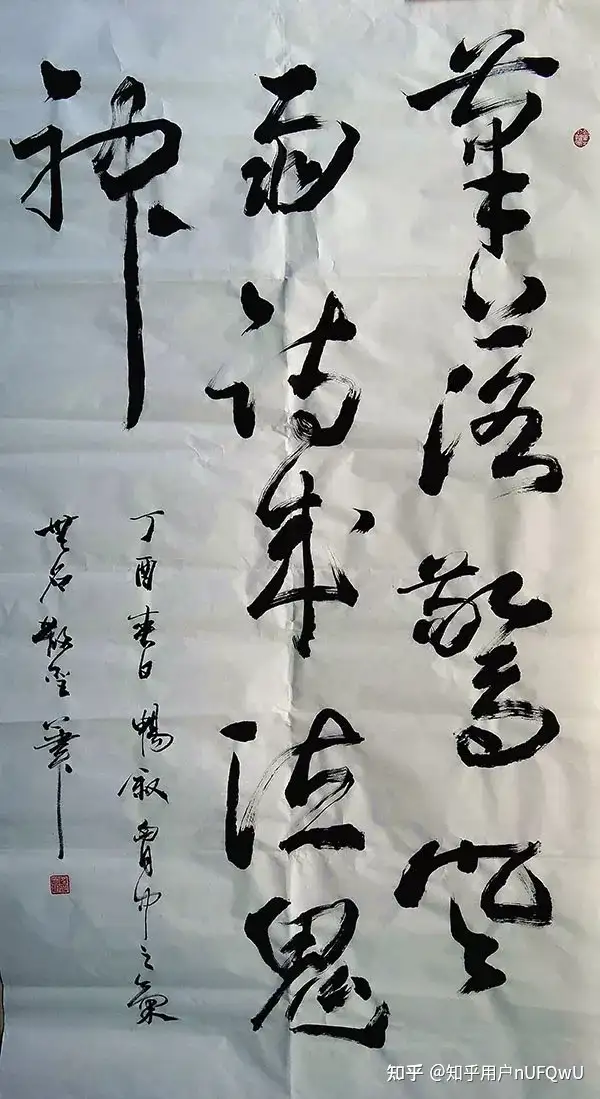 筆落驚風
雨詩成泣鬼
神
丁酉春日暢叙胷中之氣
無名散筆
知乎 @知乎用户nUFQwU